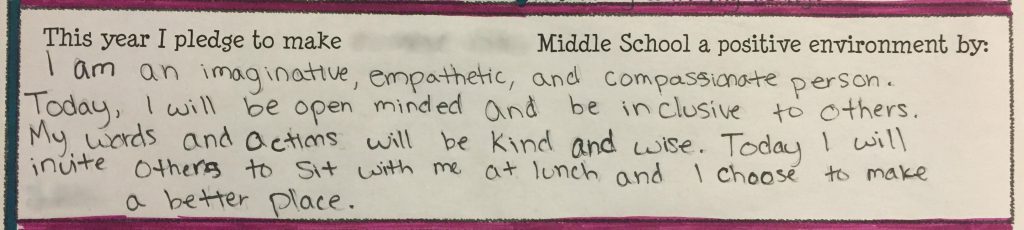 This year I pledge to make Middle School a positive environment by:
I am an imaginative, empathetic, and compassionate person.
Today, I will be open minded and be inclusive to others.
My words and actions will be kind and wise. Today I will
invite others to sit with me at lunch and I choose to make
a better place.